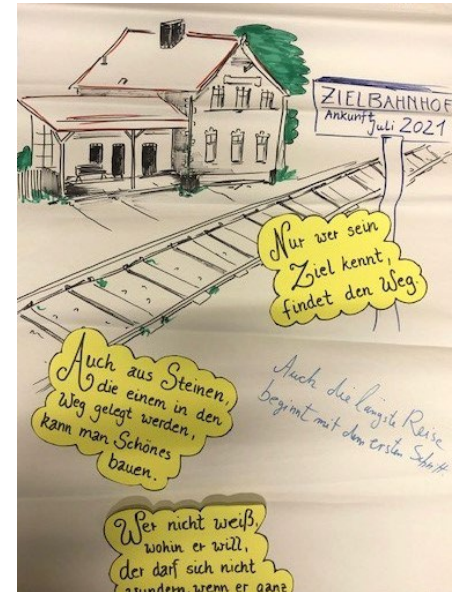 ZIELBAHNHOF
Ankunft
Juli 2021
Nur wer sein
Ziel kennt,
findet den Weg.
Auch aus Steinen,
die einem in den
Weg gelegt werden,
kann man Schönes
bauen.
Auch die längste Reise
beginnt mit dem ersten Schritt.
Wer nicht weiß,
wohin er will,
der darf sich nicht
wundern wenn er ganz